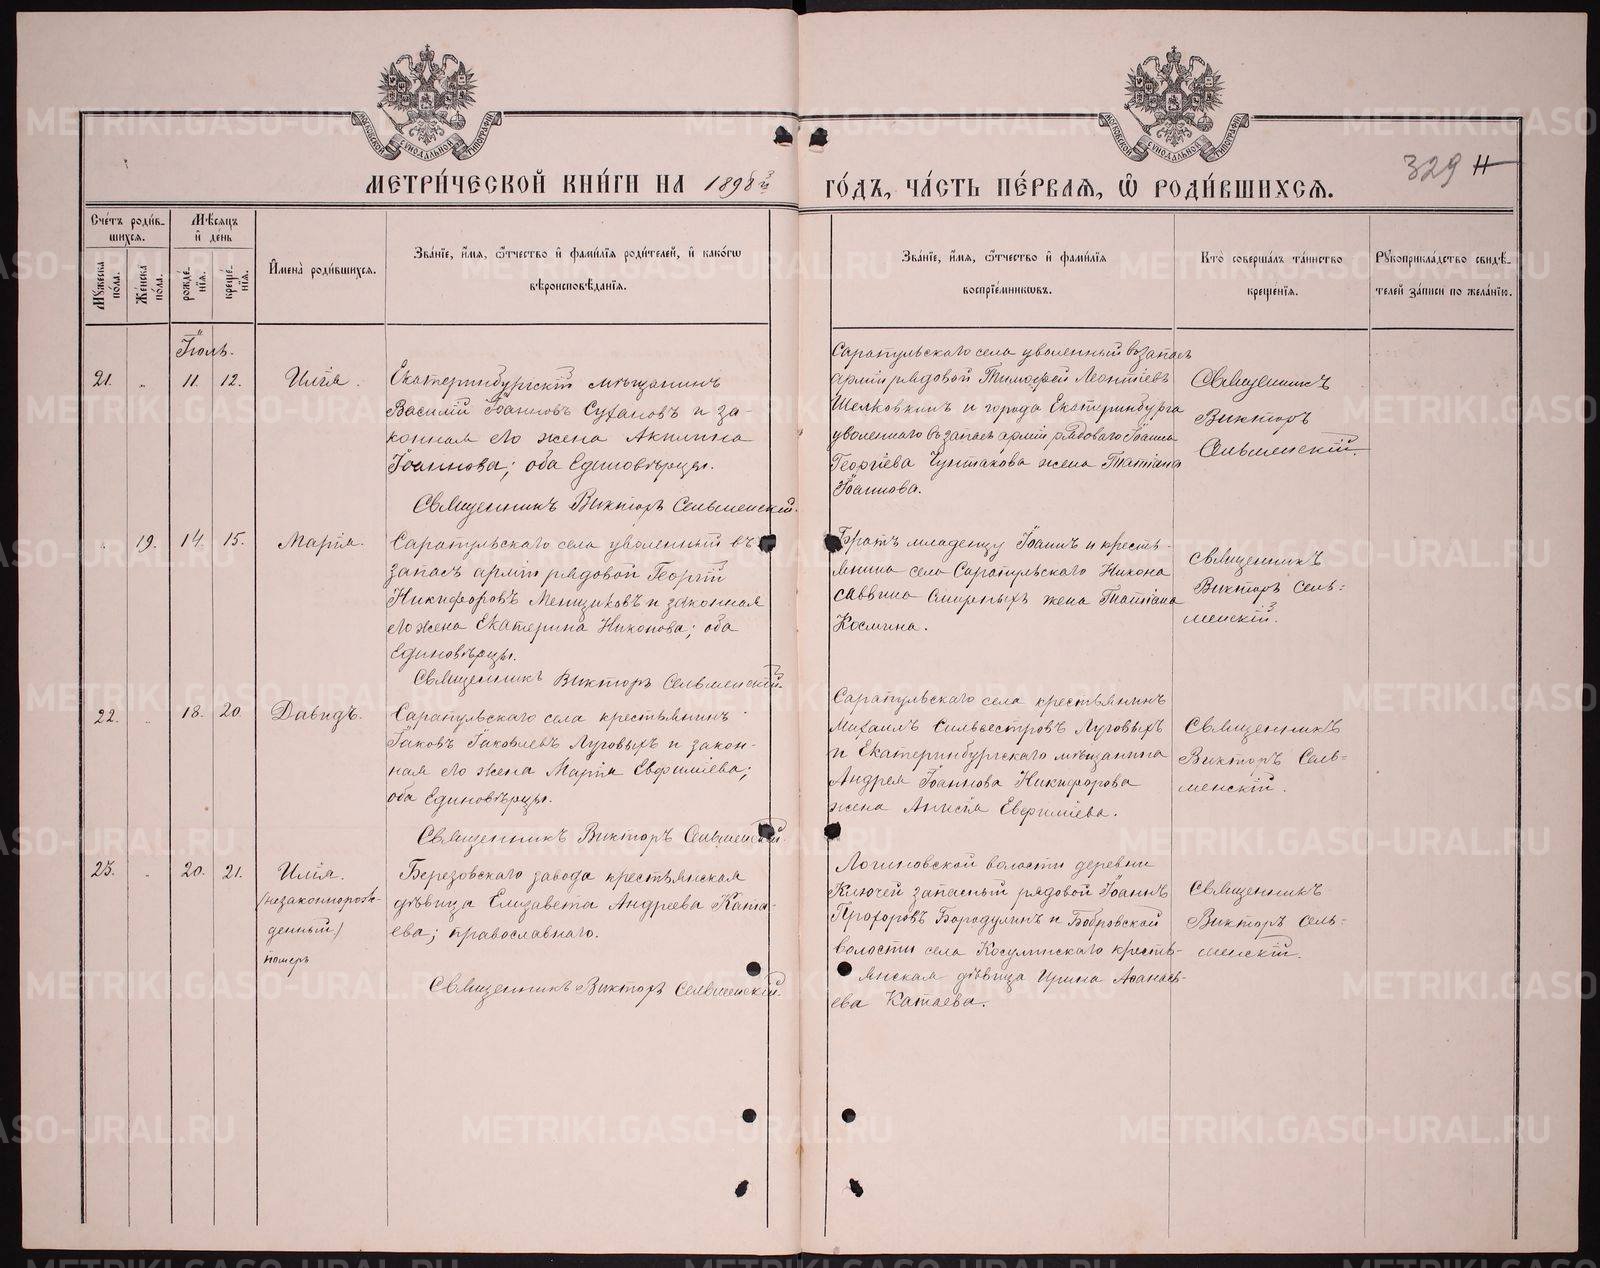 МЕТРИ́ЧЕСКОЙ КНИ́ГИ НА 1898й
ГО́ДЪ, ЧА́СТЬ ПЕ́РВАѦ, Ѽ РОДИ́ВШИХСѦ.
329
Сче́тъ роди́в-
шихсѧ.
Мѣ́сѧцъ
и̑ де́нь
Мꙋ́жеска по́ла.
Же́нска по́ла.
рожде́нїѧ.
креще́нїѧ.
И̑мена̀ роди́вшихсѧ.
Зва́нїе, и̑́мѧ, ѻ҆́тчество и̑ фами́лїѧ роди́телей, и̑ како́гѡ
вѣроисповѣ́данїѧ.
Зва́нїе, и̑́мѧ, ѻ҆́тчество и̑ фами́лїѧ
воспрїе́мникѡвъ.
Кто̀ соверша́лъ та́инство
креще́нїѧ.
Рꙋкоприкла́дство свидѣ́-
телей за́писи по жела́нїю.
Іюль.
21. „ 11. 12. Илія.
Екатеринбургскій мѣщанинъ
Василій Іоанновъ Сухановъ и за-
конная его жена Акилина
Іоаннова; оба Единовѣрцы.
Священникъ Викторъ Сельменскій.
Сарапульскаго села уволенный въ запасъ
арміи рядовой Тимофей Леонтіевъ
Шелковкинъ и города Екатеринбурга
уволеннаго въ запасъ арміи рядоваго Іоанна
Георгіева Чунтакова жена Татіана
Іоаннова.
Священникъ
Викторъ
Сельменскій.
„ 19. 14. 15. Марія.
Сарапульскаго села уволенный въ
запасъ арміи рядовой Георгій
Никифоровъ Меншиковъ и законная
его жена Екатерина Никонова; оба
Единовѣрцы.
Священникъ Викторъ Сельменскій.
Братъ младенцу Іоаннъ и кресть-
янина села Сарапульскаго Никона
Саввина Смирныхъ жена Татіана
Космина.
Священникъ
Викторъ Сель-
менскій.
22. „ 18. 20. Давидъ.
Сарапульскаго села крестьянинъ
Іаковъ Іаковлевъ Луговыхъ и закон-
ная его жена Марія Евфиміева;
оба Единовѣрцы.
Священникъ Викторъ Сельменскій.
Сарапульскаго села крестьянинъ
Михаилъ Сильвестровъ Луговыхъ
и Екатеринбургскаго мѣщанина
Андрея Іоаннова Никифорова
жена Анисія Евфиміева.
Священникъ
Викторъ Сель-
менскій.
23. „ 20. 21. Илія.
(незаконнорож-
денный)
померъ
Березовскаго завода крестьянская
дѣвица Елизавета Андреева Ката-
ева; православнаго.
Священникъ Викторъ Сельменскій.
Логиновской волости деревни
Ключей запасный рядовой Іоаннъ
Прохоровъ Бородулинъ и Бобровской
волости села Косулинскаго кресть-
янская дѣвица Ирина Аѳанась-
ева Катаева.
Священникъ
Викторъ Сель-
менскій.
METRIKI.GASO-URAL.RU